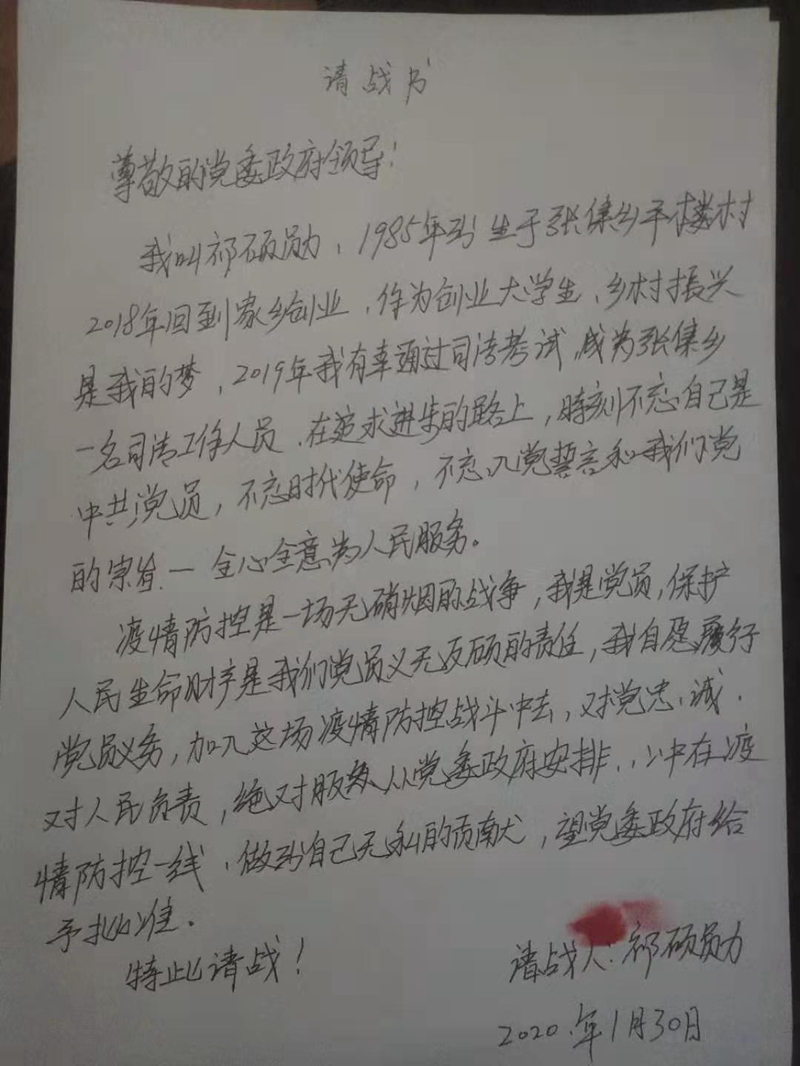 请战书
尊敬的党委政府领导！
我叫祁硕勋，1985年出生于张集乡平楼村
2018年回到家乡创业，作为创业大学生，乡村振兴
是我的梦，2019年我有幸通过司法考试，成为张集乡
一名司法工作人员．在追求进步的路上，时刻不忘自己是
中共党员，不忘时代使命，不忘入党誓言和我们党
的宗旨一全心全意为人民服务。
疫情防控是一场无硝烟的战争，我是党员，保护
人民生命财产是我们党员义无反顾的责任，我自愿履行
党员义务，加入这场疫情防控战斗中去，对党忠诚．
对人民负责，绝对服从党委政府安排．冲在疫
情防控一线．做出自己无私的贡献，望党委政府给
予批准。
特此请战！
请战人：祁硕勋
2020年1月30日